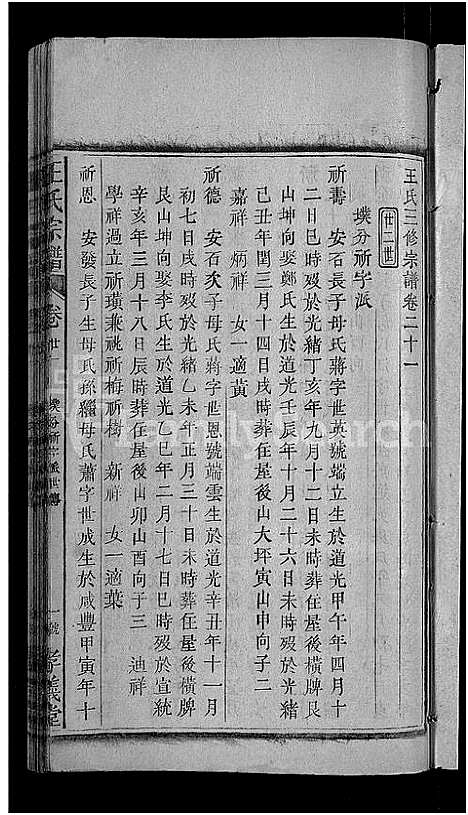 王氏三修宗譜卷二十一
廿二世
墣分祈字派
祈壽 安石長子母氏蔣字世英號端立生於道光甲午年四月十
二日巳時歿於光緒丁亥年九月十二日未時葬在屋後橫牌艮
山坤向娶鄭氏生於道光壬辰年十月二十六日未時歿於光緒
己丑年閏三月十四日戌時葬在屋後山大坪寅山申向子二
嘉祥 炳祥 女一適黃
祈德 安石次子母氏蔣字世恩號端雲生於道光辛丑年十一月
初七日戌時歿於光緒乙未年正月三十日未時葬在屋後橫牌
艮山坤向娶李氏生於道光乙巳年二月十七日巳時歿於宣統
辛亥年三月十八日辰時葬在屋後山卯山酉向子三 迪祥
學祥過立祈璜兼祧祈梅祈樹 新祥 女一適葉
祈恩 安發長子生母氏孫繼母氏蕭字世成生於咸豐甲寅年十
王氏宗譜
卷廿一
墣分祈字派世傳
一號
孝義堂